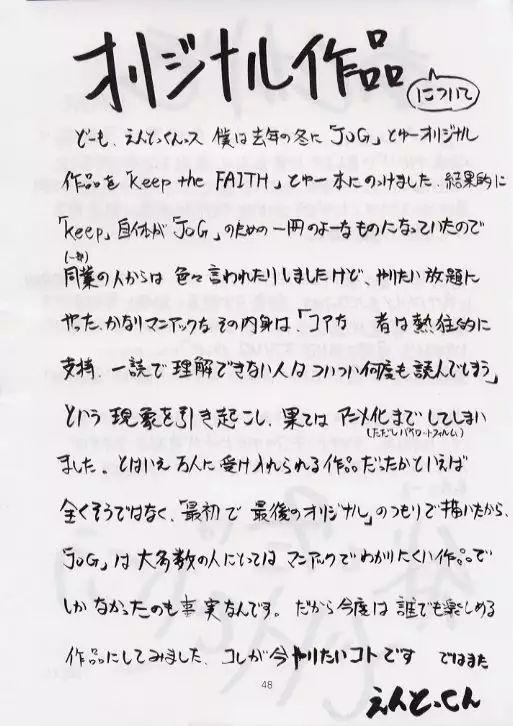 オリジナル作品
について
どーも、えんとっくんっス 僕は去年の冬に「JoG」とゆーオリジナル
作品を「keep the FAITH」とゆー本にのっけました、結果的に
「keep」自体が「JoG」のための一冊のよーなものになっていたので
(一部)
同業の人からは 色々言われたりしましたけど、やりたい放題に
やった、かなりマニアックな その内身は、「コアな 者は熱狂的に
支持、一読で理解できない人は ついつい何度も読んでしまう」
という 現象を引き起こし、果ては アニメ化までしてしまい
(ただしパイロットフィルム)
ました。とはいえ 万人に受け入れられる作品だったかといえば
全くそうではなく、「最初で 最後のオリジナル」のつもりで描いたから、
「JoG」は大多数の人にとっては マニアックでわかりにくい作品で
しかなかったのも事実なんです。だから今度は 誰でも楽しめる
作品にしてみました、コレが今やりたいコトです ではまた
48
えんとっくん